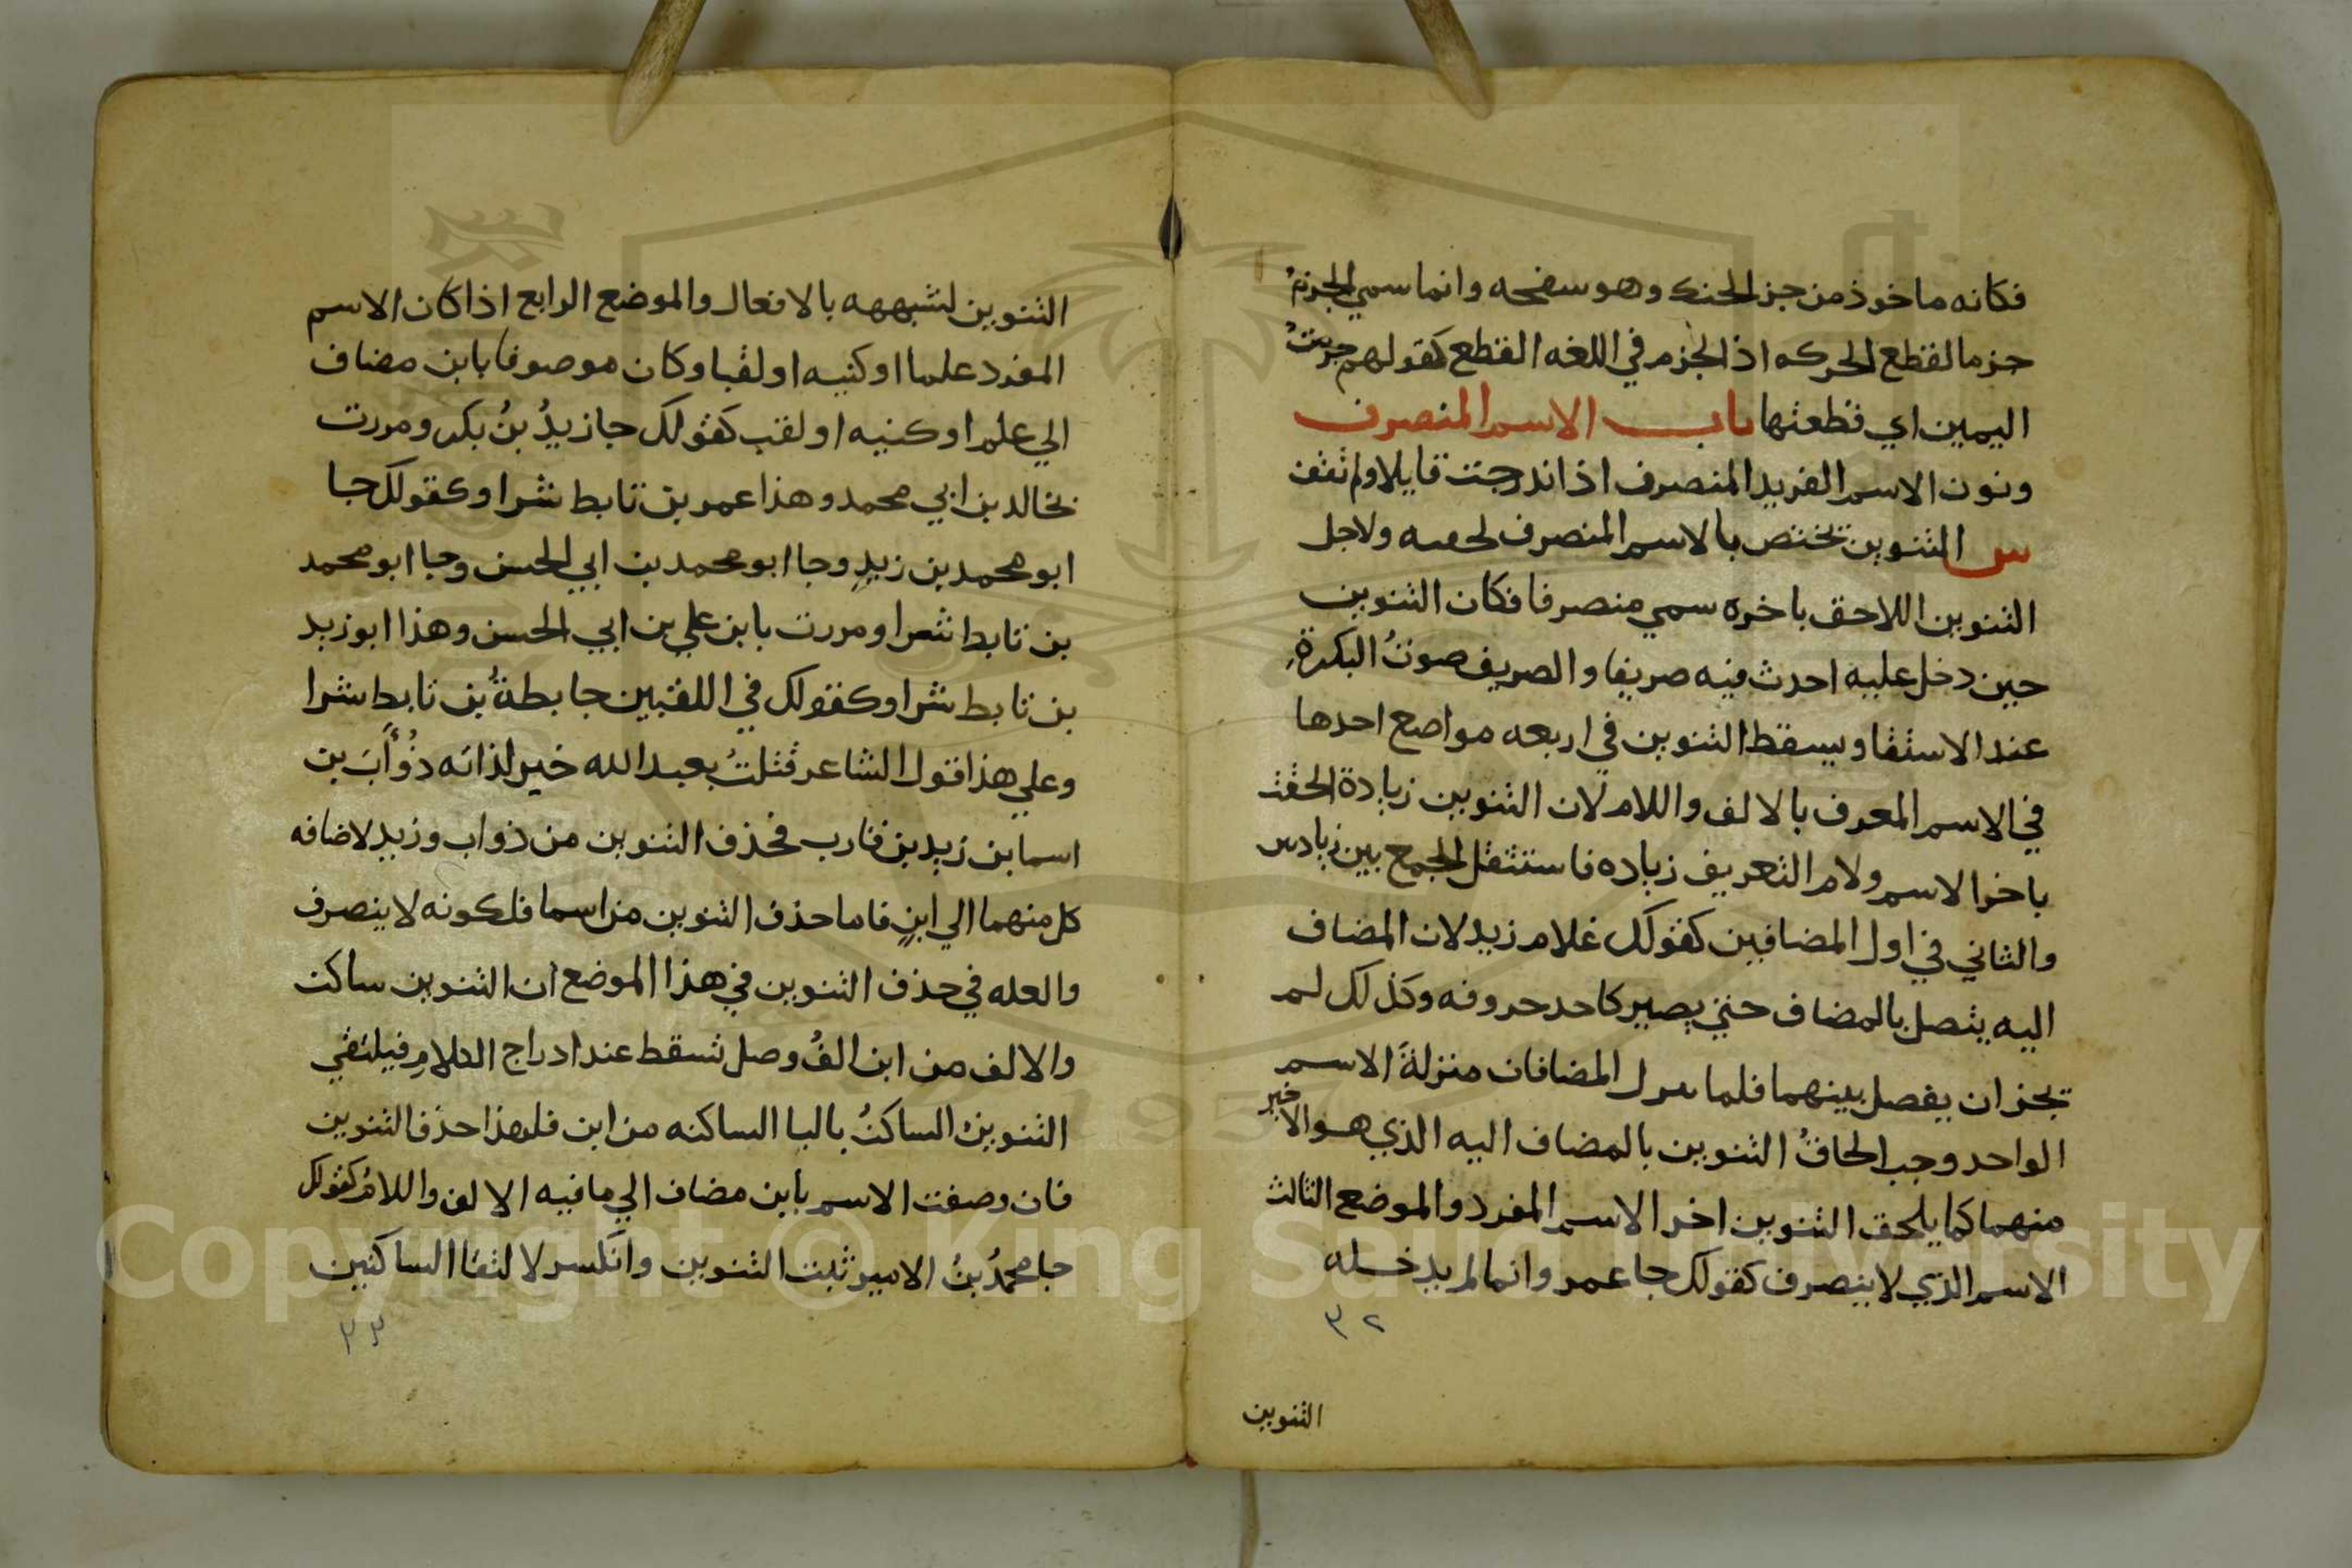 فكانه ماخوذ من جز الحنك وهو سفحه وانما سمي الجزم
جزما لقطع الحركه اذ الجزم في اللغه القطع كقولهم جزمت
اليمين اي قطعتها باب الاسم المنصرف
ونون الاسم الفريد المنصرف اذا اندرجت قايلا ولم تقف
س التنوين تختص بالاسم المنصرف لخفته ولاجل
التنوين اللاحق باخره سمي منصرفا فكان التنوين
حين دخل عليه احدث فيه صريفا والصريف صوتُ البكرةِ
عند الاستقا ويسقط التنوين في اربعه مواضع احدها
في الاسم المعرف بالالف واللام لان التنوين زيادة الحقت
باخر الاسم ولام التعريف زياده فاستثقل الجمع بين زيادتين
والثاني في اول المضافين كقولك غلام زيد لان المضاف
اليه يتصل بالمضاف حتي يصير كاحد حروفه وكذلك لم
تجز ان يفصل بينهما فلما نزل المضافان منزلةَ الاسم
الواحد وجب الحاقُ التنوين بالمضاف اليه الذي هو الاخير
منهما كما يلحق التنوين اخر الاسم المفرد والموضع الثالث
الاسم الذي لا ينصرف كقولك جا عمر وانما لم يدخله
٣٢
التنوين
التنوين لشبهه بالافعال والموضع الرابع اذا كان الاسم
المفرد علما او كنيه او لقبا وكان موصوفا بابن مضاف
الي علم او كنيه او لقب كقولك جا زيدُ بنُ بكر ومررت
بخالد بن ابي محمد وهذا عمر بن تابط شرا وكقولك جا
ابو محمد بن زيدٍ وجا ابو محمد بن ابي الحسن وجا ابو محمد
بن تابط شرا ومررت بابن علي بن ابي الحسن وهذا ابو زيد
بن تابط شرا وكقولك في اللقبين جا بطةُ بن تابط شرا
وعلي هذا قول الشاعر قتلتُ بعبد الله خير لداته ذُوأَبَ بن
اسما بن زيد بن قارب فحذف التنوين من ذواب وزيد لاضافه
كل منهما الي ابنٍ فاما حذف التنوين من اسما فلكونه لا ينصرف
والعله في حذف التنوين في هذا الموضع ان التنوين ساكن
والالف من ابن الفُ وصل تسقط عند ادراج الكلام فيلتقي
التنوين الساكنُ بالبا الساكنه من ابن فلهذا حذف التنوين
فان وصفت الاسم بابن مضاف الي ما فيه الالف واللام كقولك
جا محمدُ بنُ الامير ثبت التنوين وانكسر لالتقا الساكنين
٣٣
Copyright © King Saud University
1957